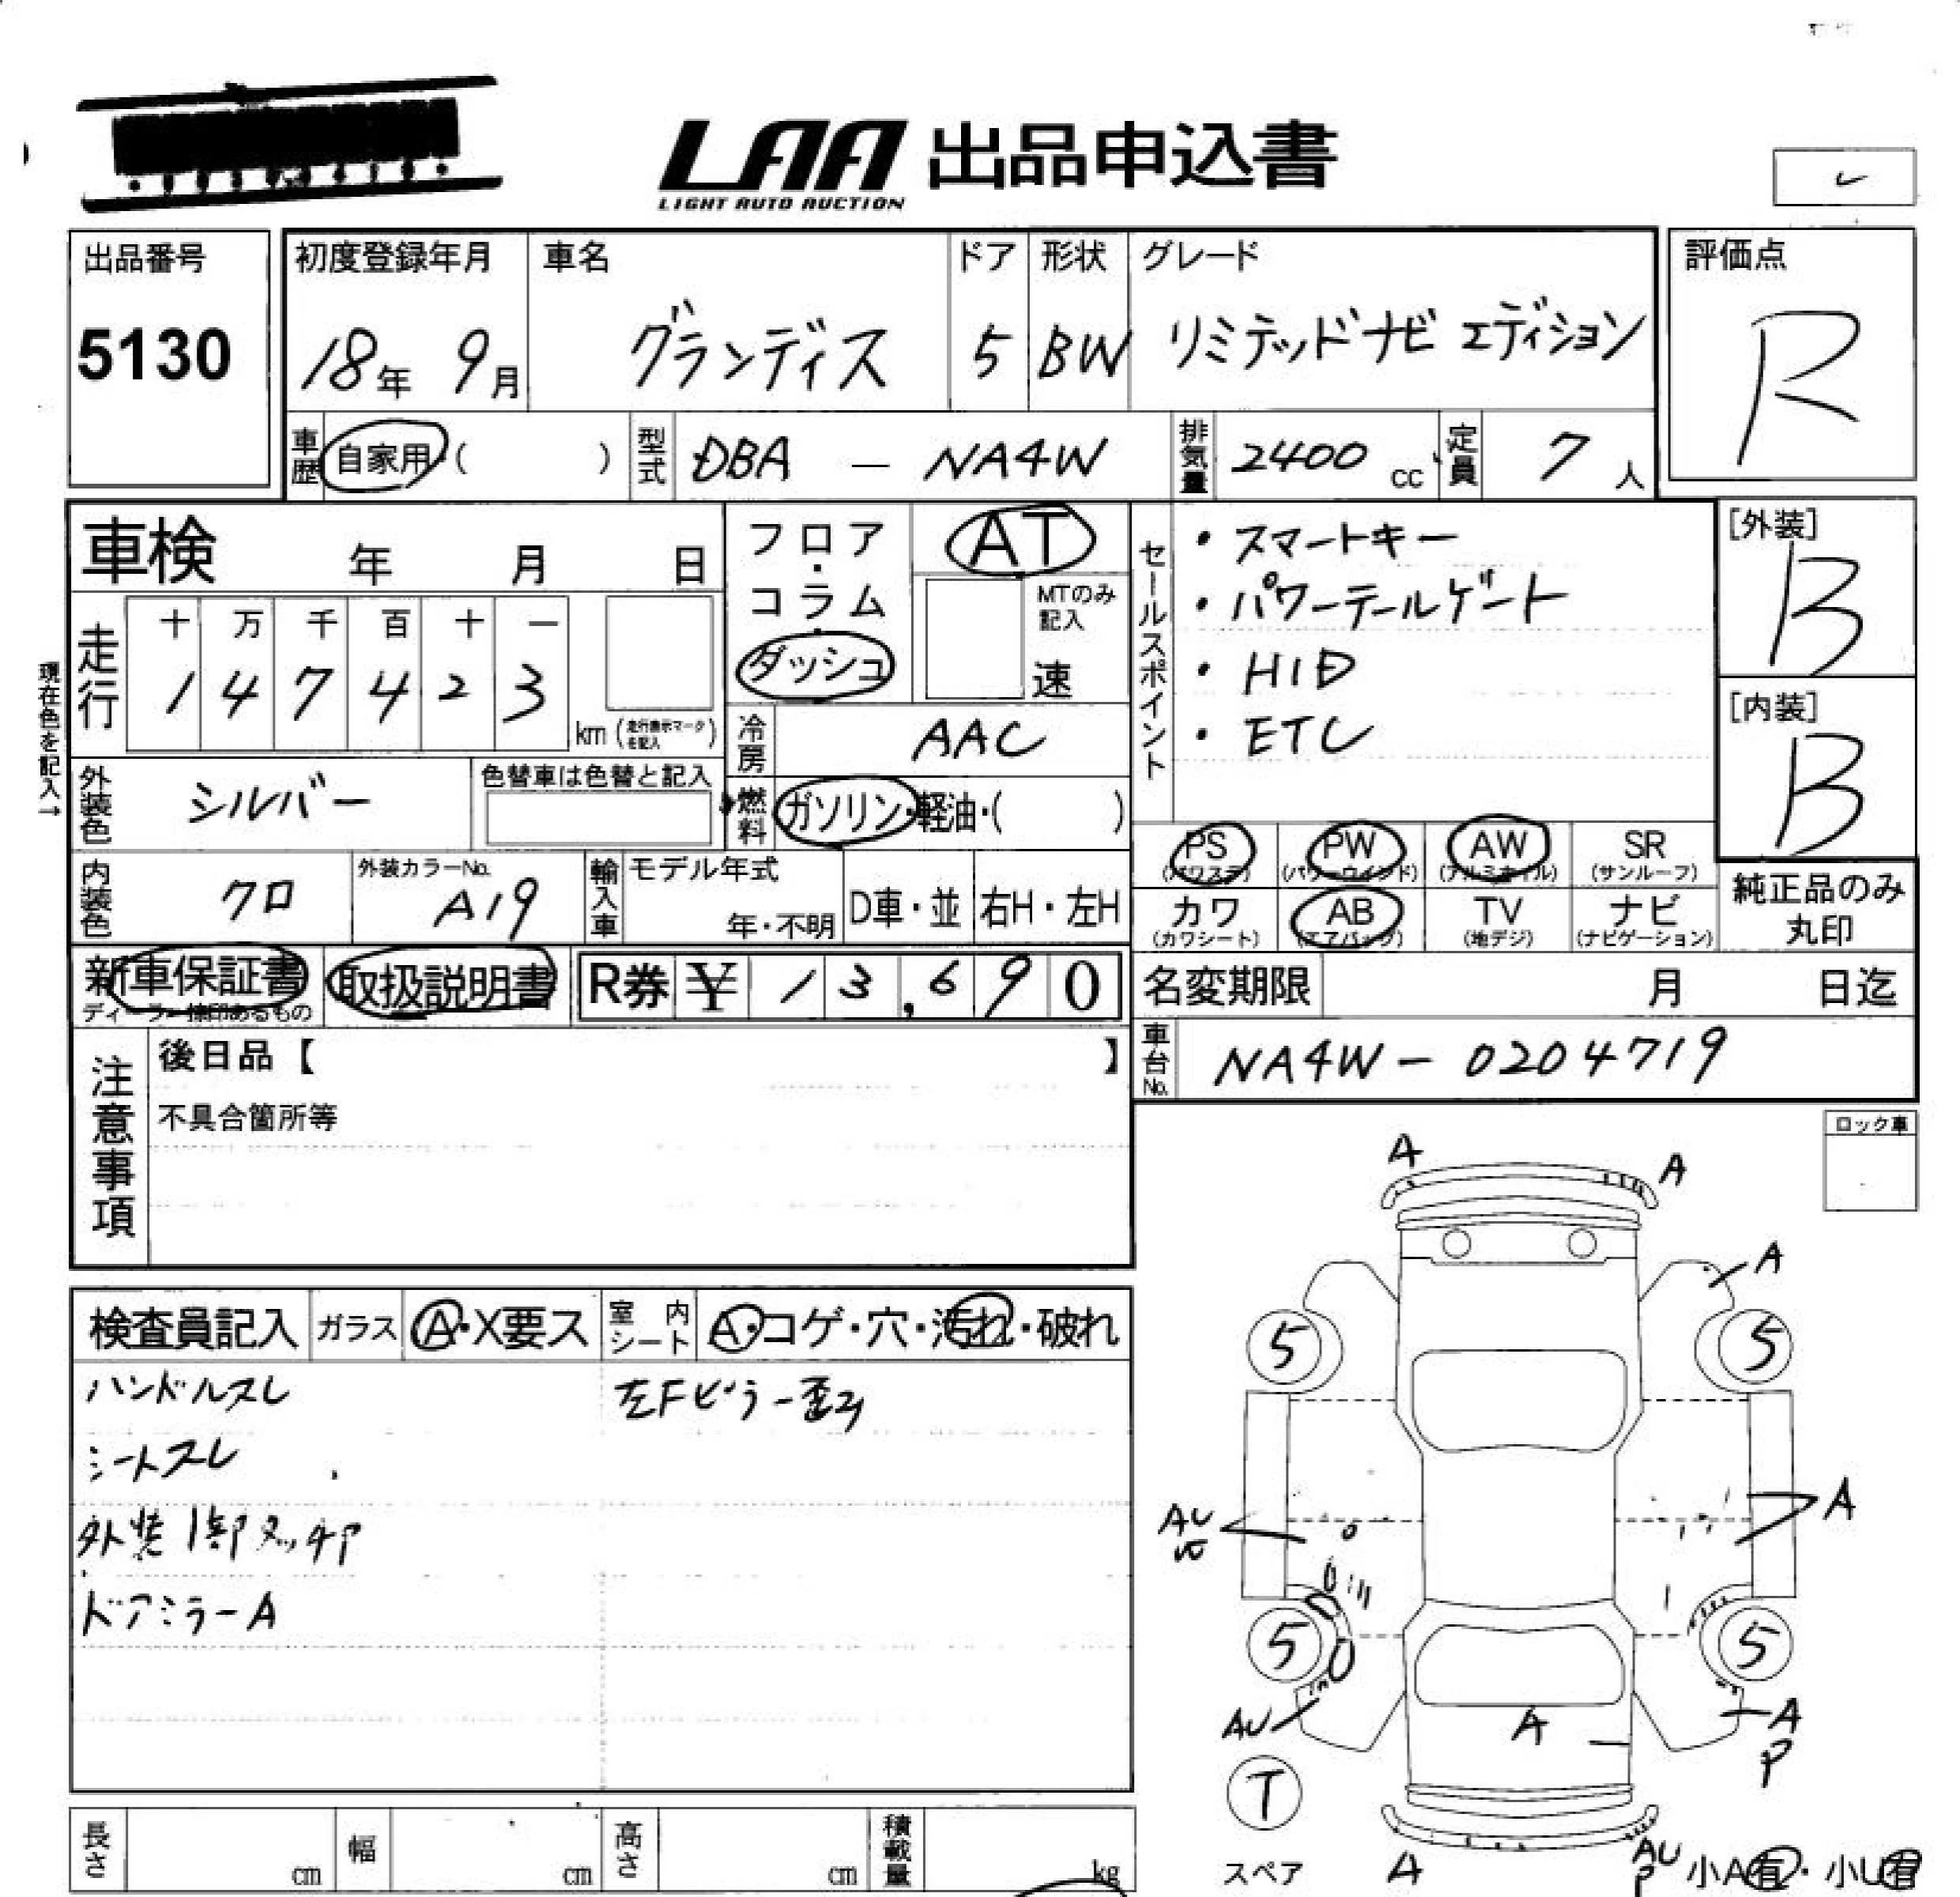 LAA 出品申込書
LIGHT AUTO AUCTION
出品番号
5130
初度登録年月
18年 9月
車名
グランディス
ドア
5
形状
BW
グレード
リミテッドナビ エディション
評価点
R
車歴
自家用・( )
型式
DBA — NA4W
排気量
2400 cc
定員
7 人
車検 年 月 日
フロア・コラム・ダッシュ
AT
MTのみ記入
速
セールスポイント
・スマートキー
・パワーテールゲート
・HID
・ETC
[外装]
B
[内装]
B
現在色を記入→
走行
十 万 千 百 十 一
1 4 7 4 2 3
km (走行表示マークを記入)
冷房
AAC
外装色
シルバー
色替車は色替と記入
燃料
ガソリン・軽油・( )
内装色
クロ
外装カラーNo.
A19
輸入車
モデル年式
年・不明
D車・並
右H・左H
PS
(パワステ)
PW
(パワーウインド)
AW
(アルミホイル)
SR
(サンルーフ)
カワ
(カワシート)
AB
(エアバック)
TV
(地デジ)
ナビ
(ナビゲーション)
純正品のみ
丸印
新車保証書
取扱説明書
R券 ¥ 13,690
名変期限 月 日迄
車台No.
NA4W-0204719
注意事項
後日品【 】
不具合箇所等
ロック車
検査員記入
ガラス
A・X要ス
室内シート
A・コゲ・穴・汚れ・破れ
ハンドルスレ
シートスレ
外装1部タッチP
ドアミラーA
左Fピラー歪み
A
A
A
5
5
AU
A
5
5
AU
A
A
P
T
スペア
A
AU
P
小A有・小U有
長さ cm
幅 cm
高さ cm
積載量 kg